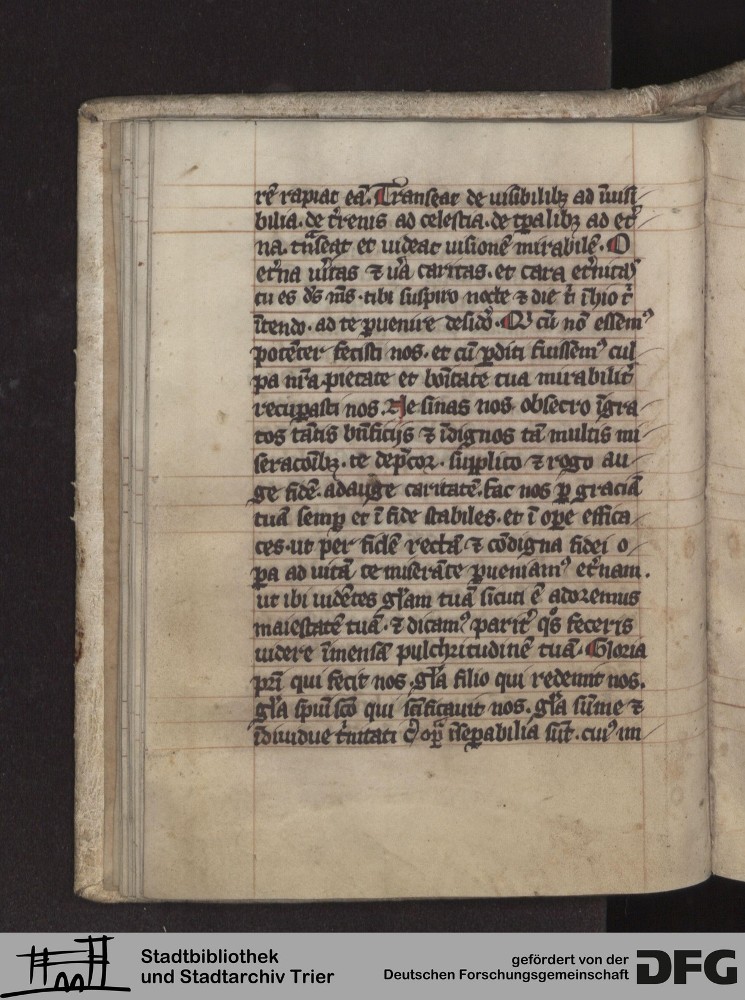 rē rapiat eā. Transeat de uisibilibꝫ ad īuisi
bilia. de t̄renis ad celestia. de tp̄alibꝫ ad et̄
na. tn̄seat et uideat uisionē mirabilē. O
et̄na ūitas ⁊ uā caritas. et cara et̄nitas
tu es ds̄ ms̄. tibi suspiro nocte ⁊ die t̄ īhio t̄
ītendo. ad te ꝑuenire desido. Q cū nō essemꝰ
potēter fecisti nos. et cū ꝑditi fuissemꝰ cul
pa nr̄a. pietate et bōitate tua mirabilit̄
recuꝑasti nos. Ne sinas nos obsecro īgra
tos tātis bn̄ficijs ⁊ īdignos tā multis mi
seracōibꝫ. te dep̄cor. supplico ⁊ rogo au
ge fidē. adauge caritatē. fac nos ꝑ graciā
tuā semꝑ et ī fide stabiles. et ī oꝑe effica
ces. ut per fidē rectā ⁊ cōdigna fidei o
ꝑa ad uitā te miserāte ꝑueniamꝰ et̄nam.
ut ibi uidētes gl̄am tuā sicuti ē adoremus
maiestatē tuā. ⁊ dicamꝰ parit̄ qs̄ feceris
uidere īmensā pulchritudinē tuā. Gloria
pr̄i qui fecit nos. gl̄a filio qui redemit nos.
gl̄a spūi sc̄o qui sc̄ificauit nos. gl̄a sūme ⁊
īdiuidue t̄nitati cꝰ oꝑa īseꝑabilia sūt. cuiꝰ im
Stadtbibliothek
und Stadtarchiv Trier
gefördert von der
Deutschen Forschungsgemeinschaft
DFG